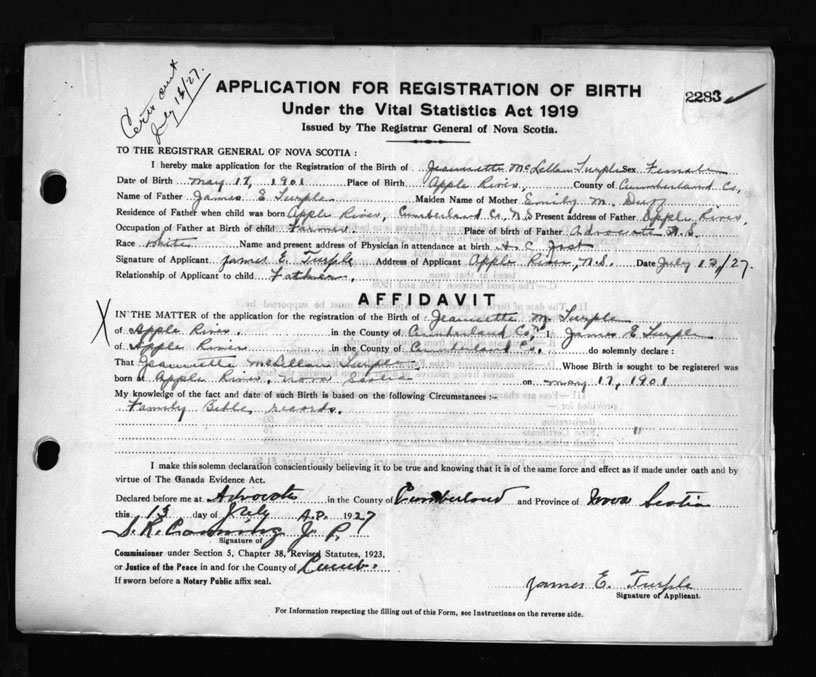 Cert out
July 16/27.
APPLICATION FOR REGISTRATION OF BIRTH
2283
Under the Vital Statistics Act 1919
Issued by The Registrar General of Nova Scotia.
TO THE REGISTRAR GENERAL OF NOVA SCOTIA :
I hereby make application for the Registration of the Birth of Jeannette McLellan Turple Sex Female
Date of Birth May 17, 1901 Place of Birth Apple River, County of Cumberland Co,
Name of Father James E Turple Maiden Name of Mother Emily M.
Residence of Father when child was born Apple River, Cumberland Co, N.S Present address of Father Apple River,
Occupation of Father at Birth of child Farmer Place of birth of Father Advocate N.S.
Race White Name and present address of Physician in attendance at birth A. C Jost
Signature of Applicant James E. Turple Address of Applicant Apple River, N.S. Date July 13/27.
Relationship of Applicant to child Father.
AFFIDAVIT
X
IN THE MATTER of the application for the registration of the Birth of : Jeannette M. Turple
of Apple River. in the County of Cumberland Co, I, James E Turple
of Apple River in the County of Cumberland Co. do solemnly declare :
That Jeannette McLellan Turple Whose Birth is sought to be registered was
born at Apple River, Nova Scotia on May 17, 1901
My knowledge of the fact and date of such Birth is based on the following Circumstances :-
Family Bible records.
I make this solemn declaration conscientiously believing it to be true and knowing that it is of the same force and effect as if made under oath and by
virtue of The Canada Evidence Act.
Declared before me at Advocate in the County of Cumberland and Province of Nova Scotia
this 13 day of July A.D. 1927
S. K. J. P.
Signature of
Commissioner under Section 5, Chapter 38, Revised Statutes, 1923,
or Justice of the Peace in and for the County of Cumb.
If sworn before a Notary Public affix seal.
James E. Turple
Signature of Applicant.
For Information respecting the filling out of this Form, see Instructions on the reverse side.